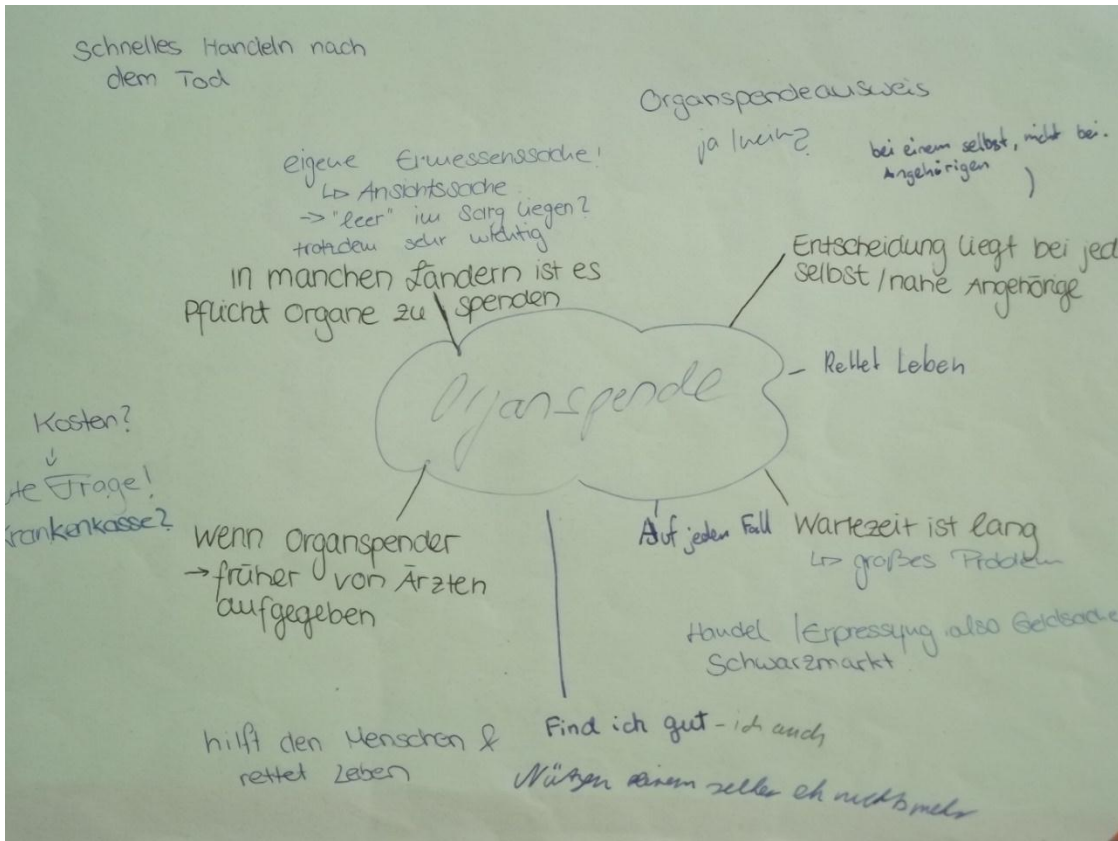 Schnelles Handeln nach
dem Tod
Organspendeausweis
ja/nein?
bei einem selbst, nicht bei.
Angehörigen
eigene Ermessenssache!
↳ Ansichtssache
→ "leer" im Sarg liegen?
trotzdem sehr wichtig
in manchen Ländern ist es
Pflicht Organe zu spenden
Entscheidung liegt bei jed
selbst / nahe Angehörige
- Rettet Leben
Organspende
Kosten?
↓
te Frage!
Krankenkasse?
wenn Organspender
→ früher von Ärzten
aufgegeben
Auf jeden Fall
Wartezeit ist lang
↳ großes Problem
Handel / Erpressung also Geldsache
Schwarzmarkt
hilft den Menschen &
rettet Leben
Find ich gut - ich auch
Nützen einem selber eh nichts mehr